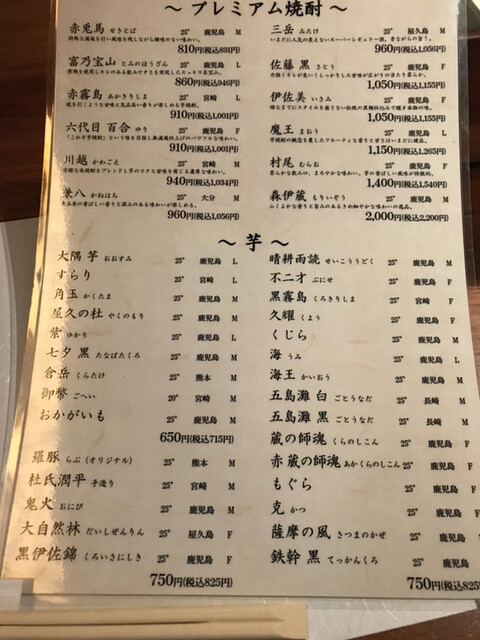 ～ プレミアム焼酎 ～
赤兎馬 せきとば 25° 鹿児島 M
810円(税込891円)
富乃宝山 とみのほうざん 25° 鹿児島 F
860円(税込946円)
赤霧島 あかきりしま 25° 宮崎 L
910円(税込1,001円)
六代目 百合 ゆり 25° 鹿児島 F
910円(税込1,001円)
川越 かわごえ 25° 宮崎 M
940円(税込1,034円)
兼八 かねはち 25° 大分 M
960円(税込1,056円)
三岳 みたけ 25° 屋久島 M
960円(税込1,056円)
佐藤 黒 さとう 25° 鹿児島 F
1,050円(税込1,155円)
伊佐美 いさみ 25° 鹿児島 F
1,050円(税込1,155円)
魔王 まおう 25° 鹿児島 M
1,150円(税込1,265円)
村尾 むらお 25° 鹿児島 M
1,400円(税込1,540円)
森伊蔵 もりいぞう 25° 鹿児島 M
2,000円(税込2,200円)
～ 芋 ～
大隅 芋 おおすみ 25° 鹿児島 L
ずらり 25° 宮崎 L
角玉 かくたま 25° 鹿児島 M
屋久の杜 やくのもり 25° 鹿児島 M
紫 ゆかり 25° 鹿児島 L
七夕 黒 たなばたくろ 25° 鹿児島 M
倉岳 くらたけ 25° 熊本 M
御幣 ごへい 20° 宮崎 M
おかがいも 25° 鹿児島 M
650円(税込715円)
羅豚 らぶ (オリジナル) 25° 熊本 M
杜氏潤平 手造り 25° 宮崎 M
鬼火 おにび 25° 鹿児島 M
大自然林 だいしぜんりん 25° 屋久島 F
黒伊佐錦 くろいさにしき 25° 鹿児島 F
750円(税込825円)
晴耕雨読 せいこううどく 25° 鹿児島 M
不二才 ぶにせ 25° 鹿児島 F
黒霧島 くろきりしま 25° 宮崎 F
久耀 くよう 25° 鹿児島 F
くじら 25° 鹿児島 M
海 うみ 25° 鹿児島 L
海王 かいおう 25° 鹿児島 M
五島灘 白 ごとうなだ 25° 長崎 M
五島灘 黒 ごとうなだ 25° 長崎 F
蔵の師魂 くらのしこん 25° 鹿児島 F
赤蔵の師魂 あかくらのしこん 25° 鹿児島 F
もぐら 25° 鹿児島 M
克 かつ 25° 鹿児島 F
薩摩の風 さつまのかぜ 25° 鹿児島 F
鉄幹 黒 てっかんくろ 25° 鹿児島
750円(税込825円)